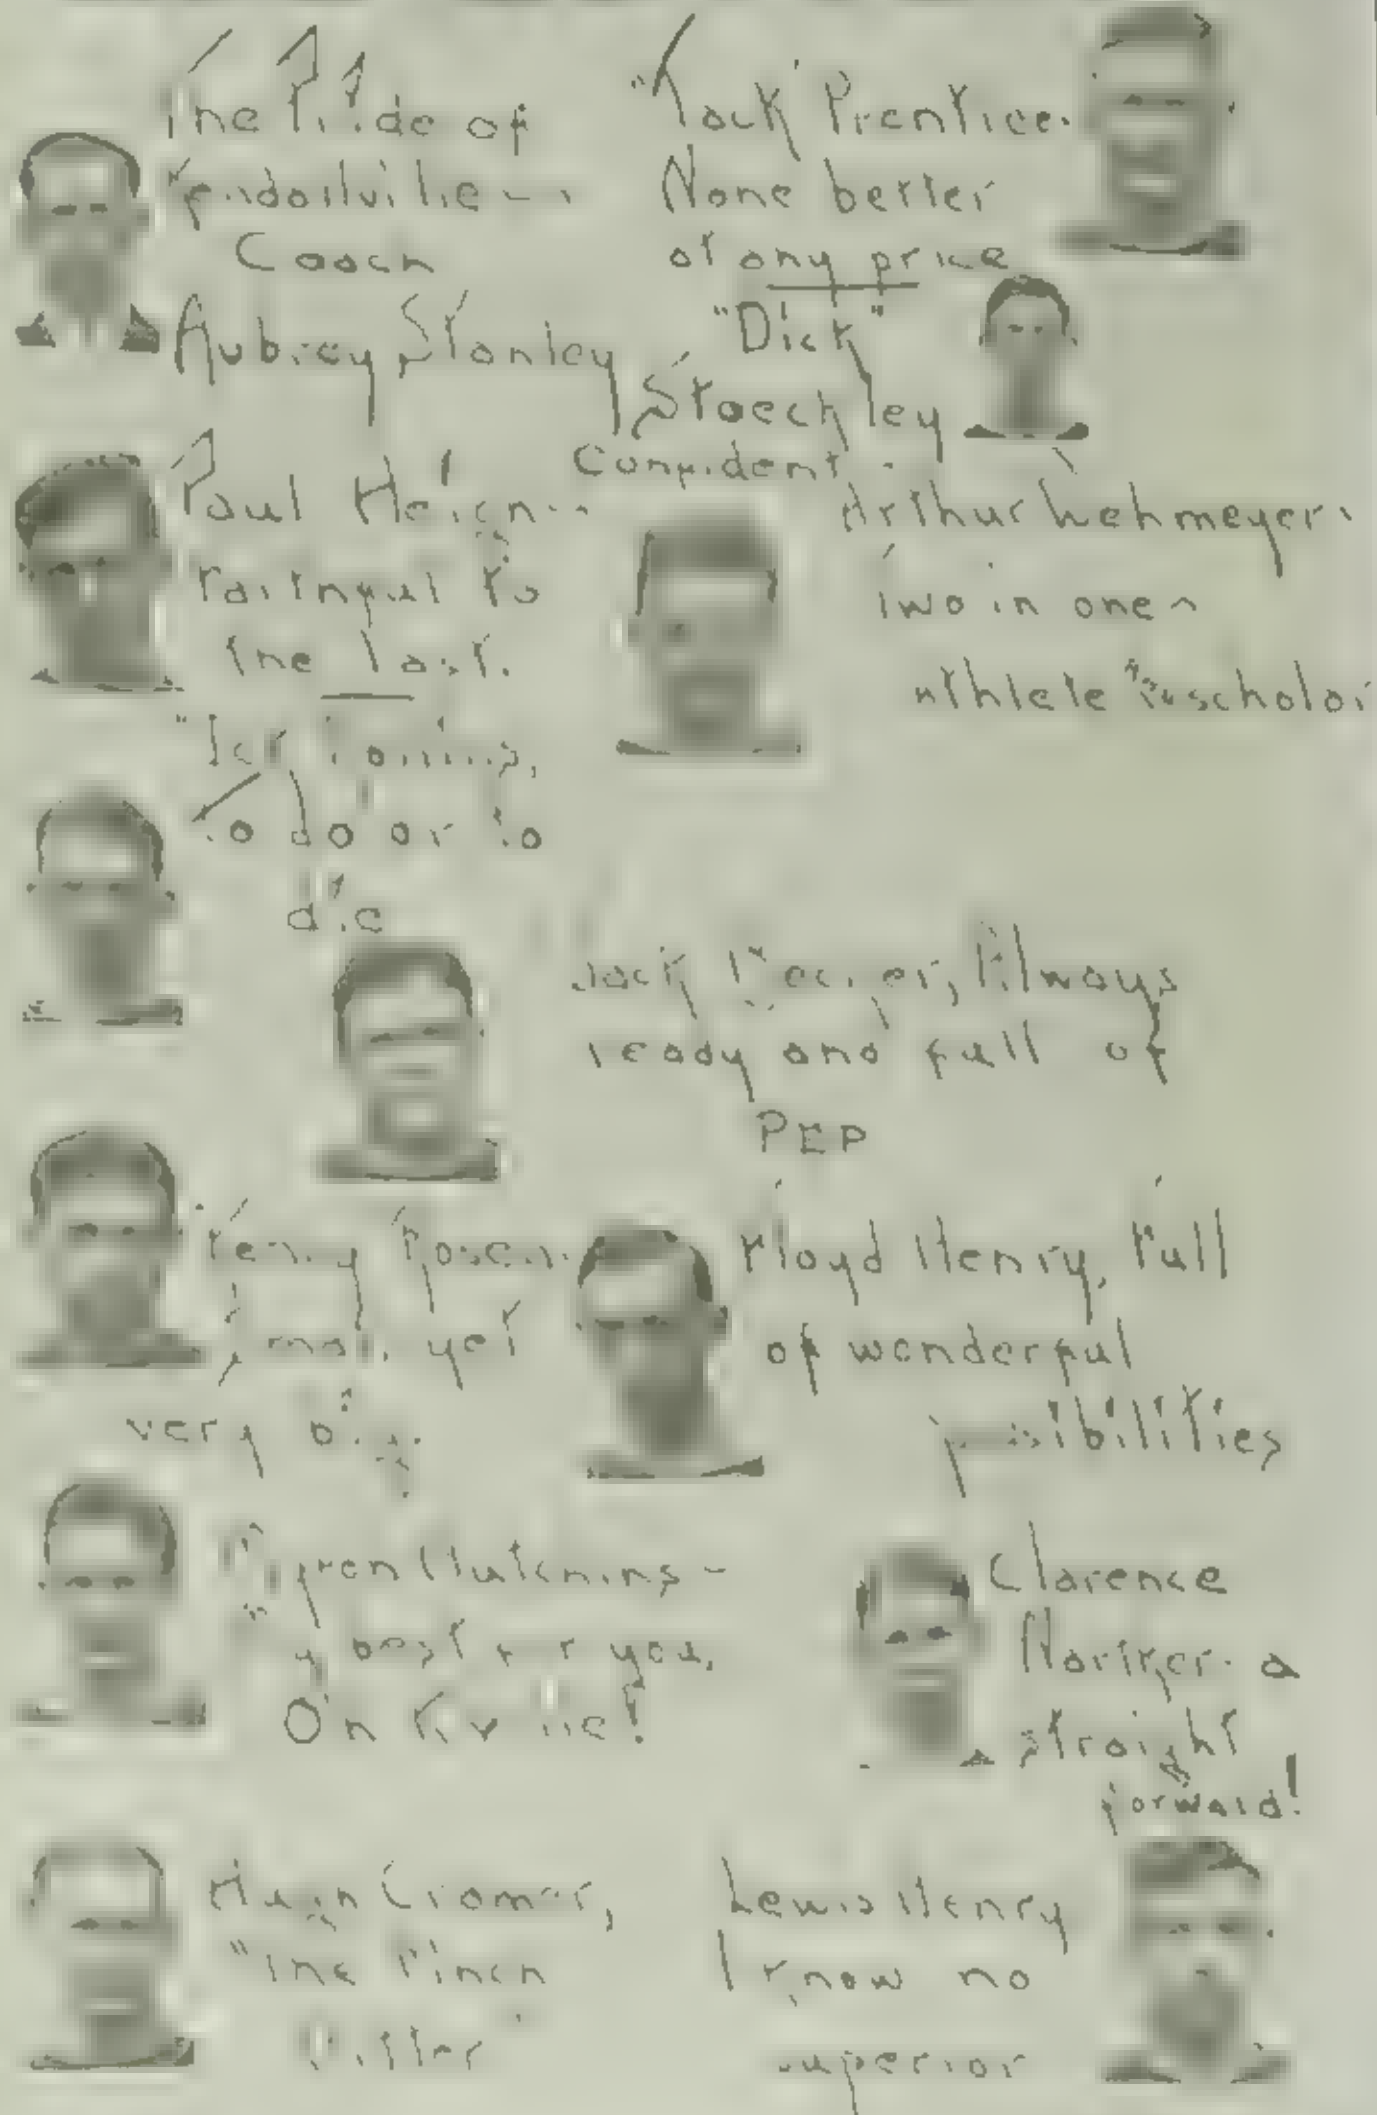 The Pride of
Kendallville -
Coach
Aubrey Stanley
"Tack" Prentice.
None better
at any price
"Dick"
Stoeckley
Confident.
Paul
faithful to
the last.
Arthur Wehmeyer.
Two in one -
Athlete scholar
to do or to
die
Jack Always
ready and full of
PEP
small yet
very big.
Floyd Henry, Full
of wonderful
possibilities
Byron Hutchins -
My best for you,
On
Clarence
a
straight
forward!
Hugh Cramer,
"The Pinch
Hitter"
Lewis Henry
I know no
superior